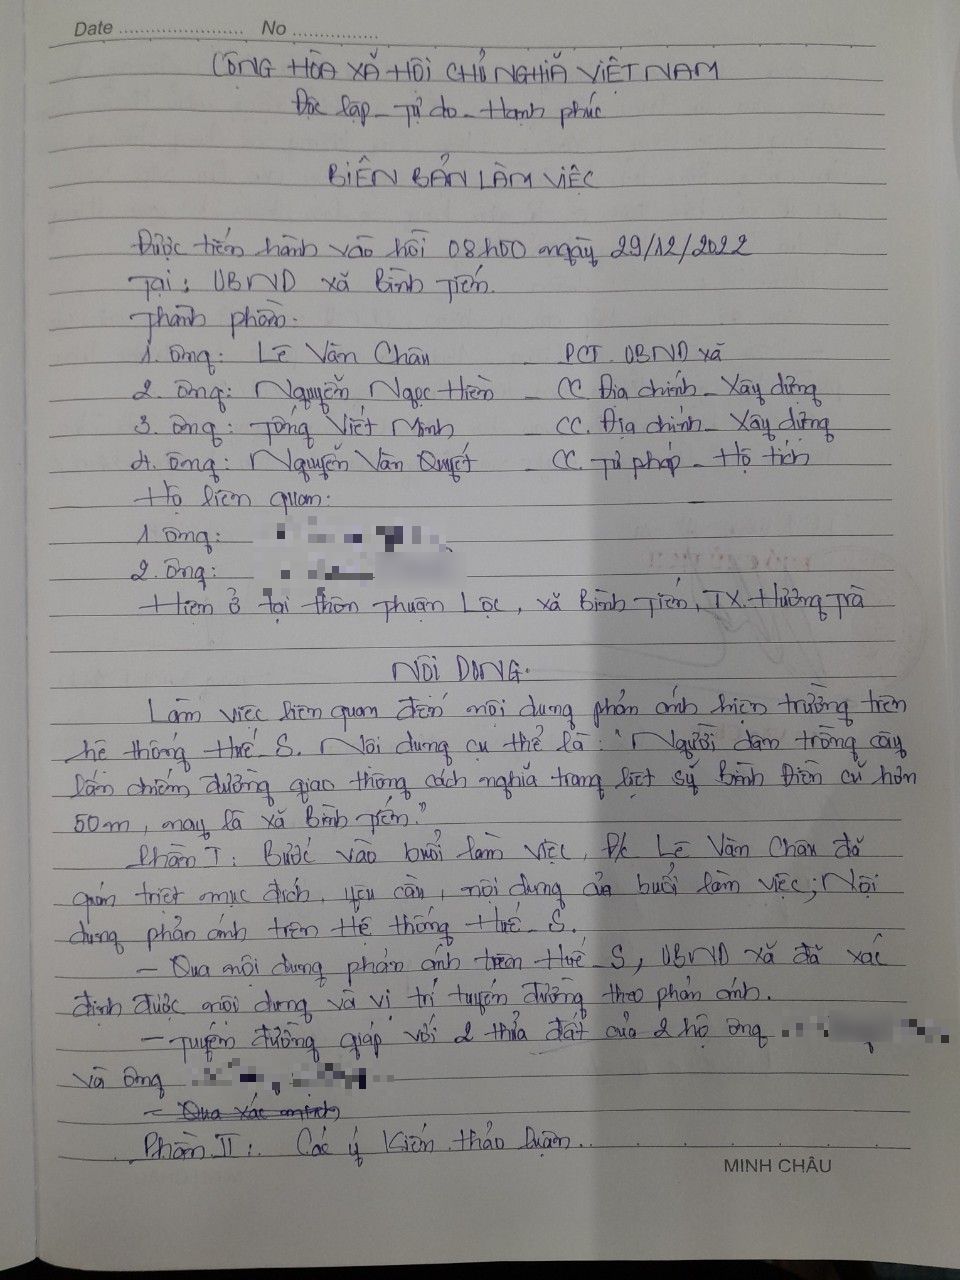 Date ........................ No ................
CỘNG HÒA XÃ HỘI CHỦ NGHĨA VIỆT NAM
Độc lập - Tự do - Hạnh phúc
BIÊN BẢN LÀM VIỆC
Được tiến hành vào hồi 08h00 ngày 29/12/2022
Tại: UBND xã Bình Tiến.
Thành phần.
1. Ông: Lê Văn Châu - PCT. UBND xã
2. Ông: Nguyễn Ngọc Hiền - CC. Địa chính - Xây dựng
3. Ông: Tống Viết Minh - CC. Địa chính - Xây dựng
4. Ông: Nguyễn Văn Quyết - CC. Tư pháp - Hộ tịch
Hộ liên quan:
1. Ông:
2. Ông:
Hiện ở tại thôn Thuận Lộc, xã Bình Tiến, TX. Hương Trà
NỘI DUNG.
Làm việc liên quan đến nội dung phản ánh hiện trường trên
hệ thống Huế_S. Nội dung cụ thể là: "Người dân trồng cây
lấn chiếm đường giao thông cách nghĩa trang liệt sỹ Bình Điền cũ hơn
50m, nay là xã Bình Tiến."
Phần I: Bước vào buổi làm việc, Đ/c Lê Văn Châu đã
quán triệt mục đích, yêu cầu, nội dung của buổi làm việc; Nội
dung phản ánh trên Hệ thống Huế_S.
- Qua nội dung phản ánh trên Huế_S, UBND xã đã xác
định được nội dung và vị trí tuyến đường theo phản ánh.
- Tuyến đường giáp với 2 thửa đất của 2 hộ ông
và ông
- Qua xác minh
Phần II: Các ý kiến thảo luận.
MINH CHÂU